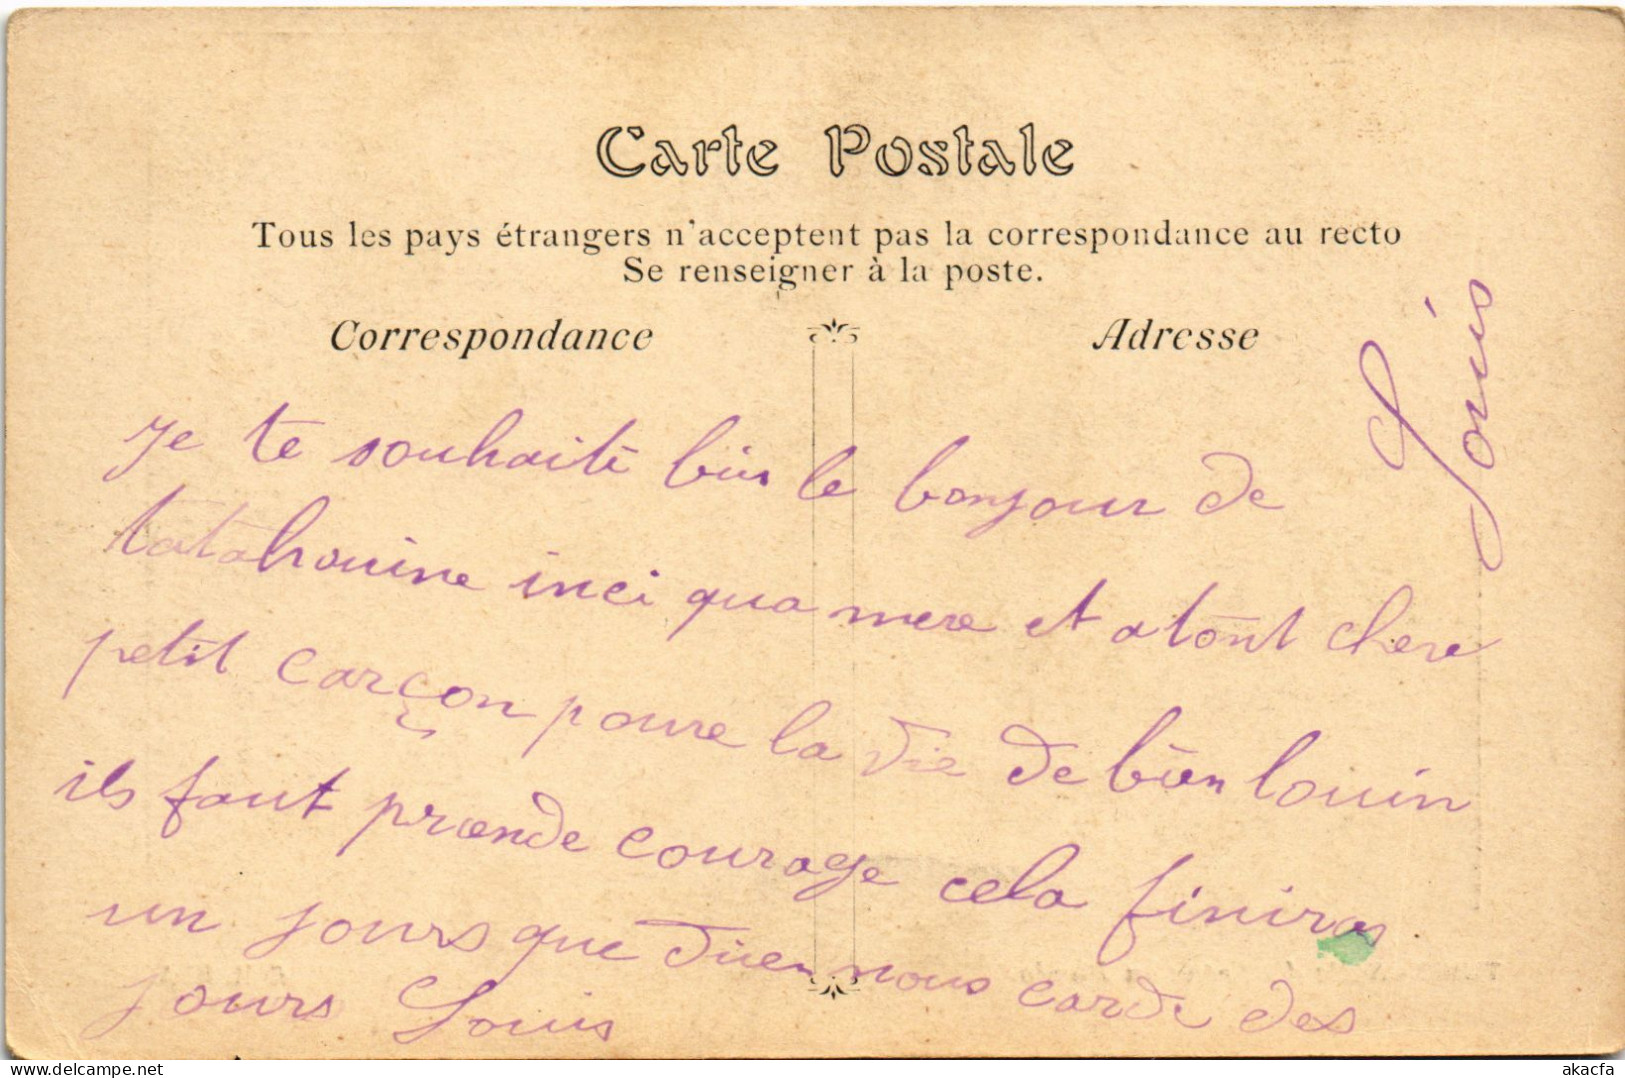 Carte Postale
Tous les pays étrangers n'acceptent pas la correspondance au recto
Se renseigner à la poste.
Correspondance
Adresse
Je te souhaite bien le bonjour de
tatahouine inci qua mere et a tont chere
petit carçon poure la vie de bien louin
ils faut prende courage cela finiras
un jours que Dieu nous carde des
jours Louis
Louis
delcampe.net
akacfa